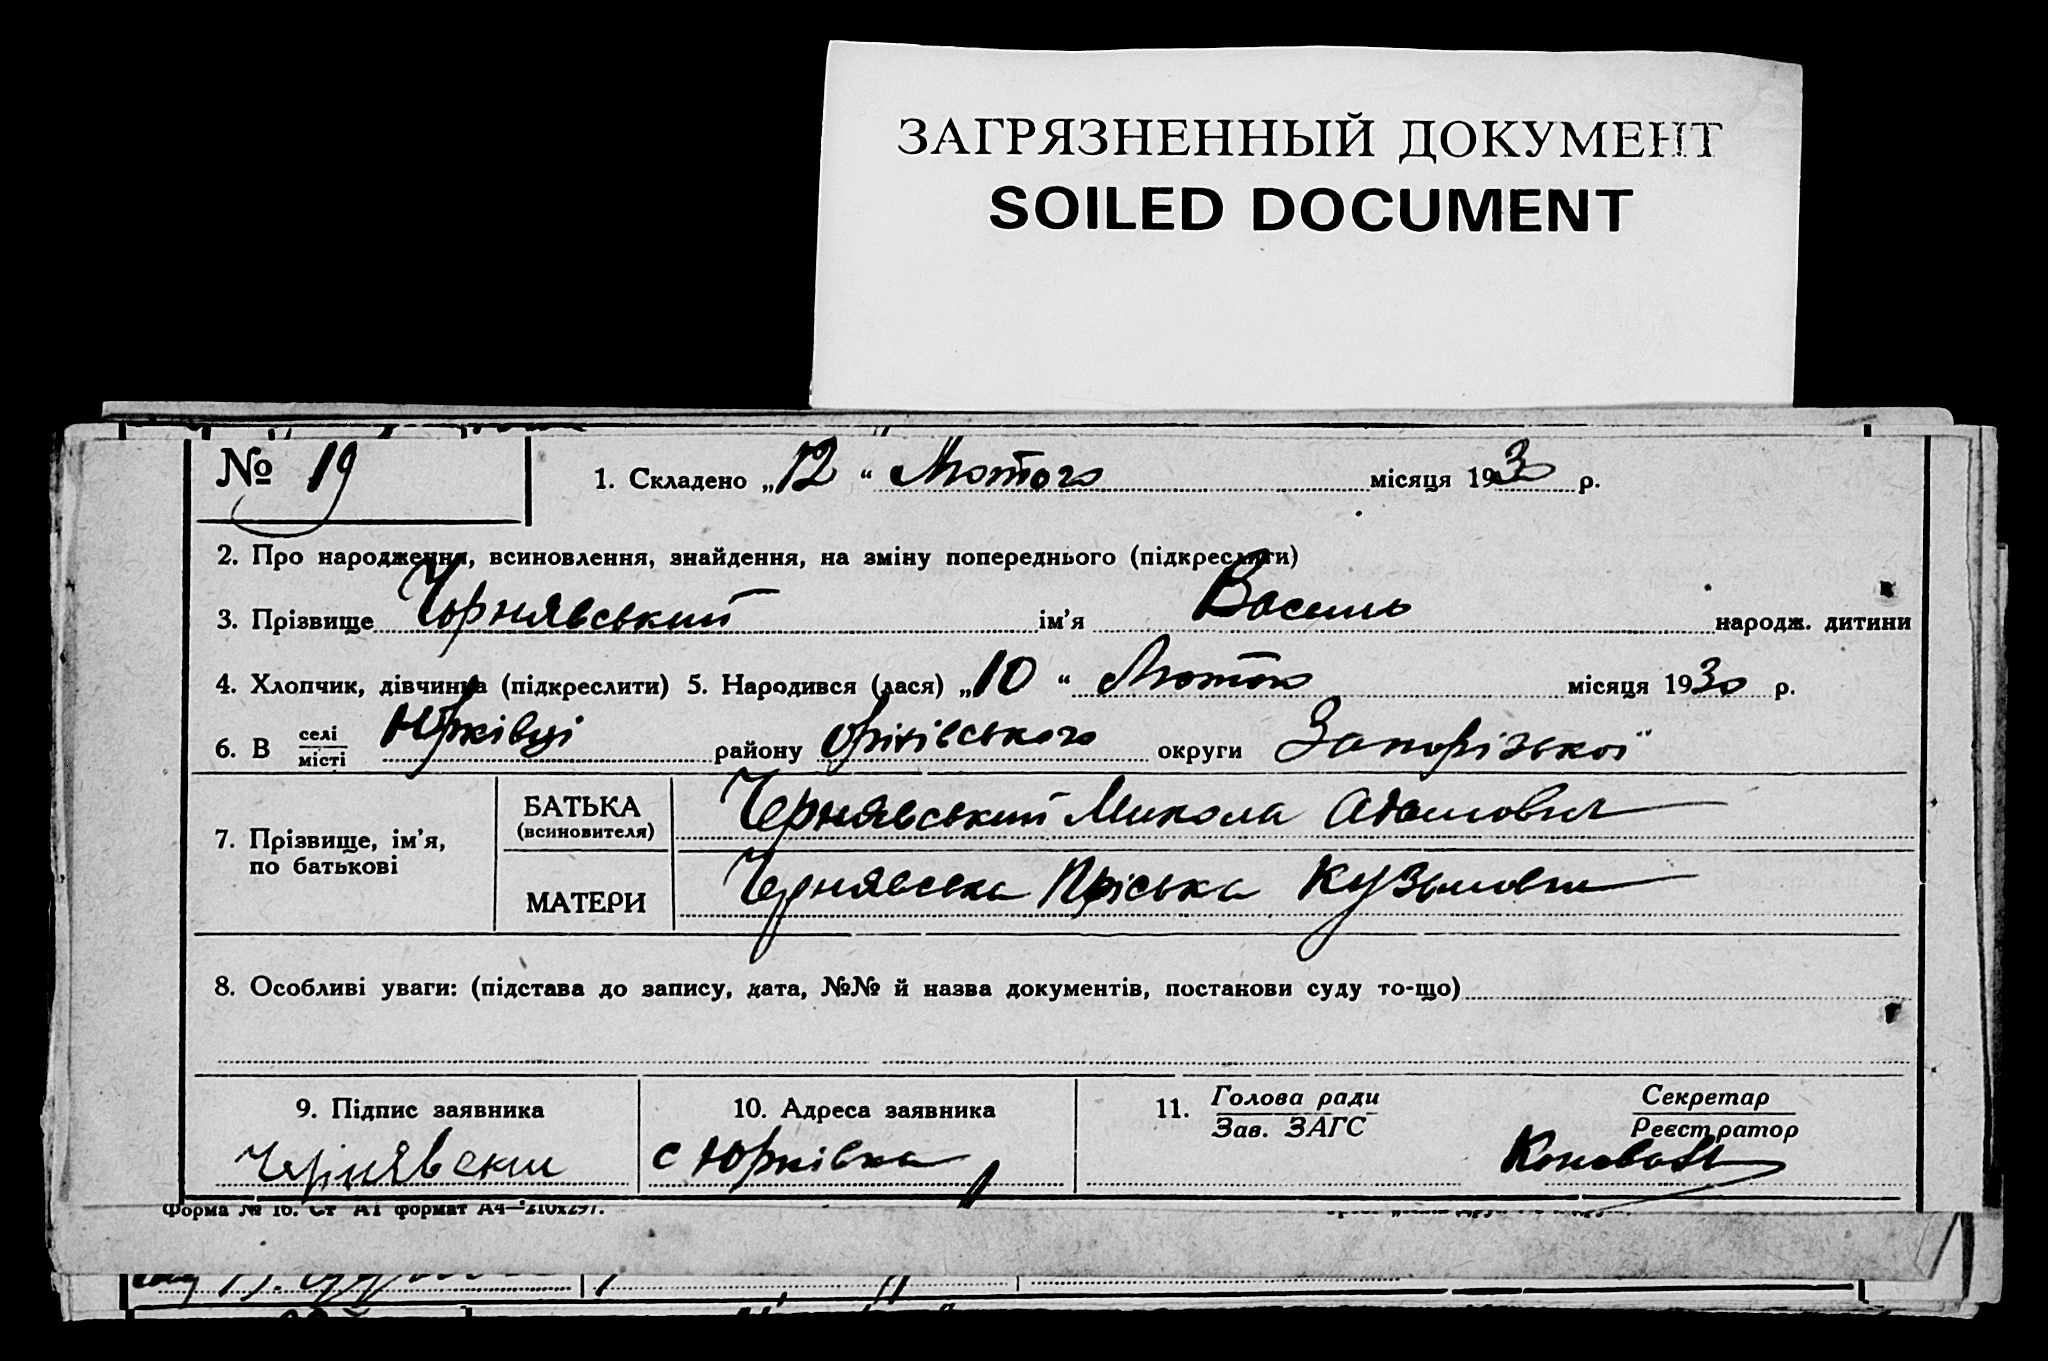 ЗАГРЯЗНЕННЫЙ ДОКУМЕНТ
SOILED DOCUMENT
№ 19
1. Складено „12“ Лютого місяця 1930 р.
2. Про народження, всиновлення, знайдення, на зміну попереднього (підкреслити)
3. Прізвище Чорнявський ім'я Василь народж. дитини
4. Хлопчик, дівчинка (підкреслити) 5. Народився (лася) „10“ Лютого місяця 1930 р.
6. В селі місті Юрківці району Оріхівського округи Запорізької
7. Прізвище, ім'я, по батькові
БАТЬКА (всиновителя) Чернявський Микола Адамович
МАТЕРИ Чернявська Пріська Кузьмовна
8. Особливі уваги: (підстава до запису, дата, №№ й назва документів, постанови суду то-що)
9. Підпис заявника 10. Адреса заявника 11. Голова ради Зав. ЗАГС Секретар Реєстратор
с Юрківка
Форма № 16. Ст А1 формат А4—210x297.